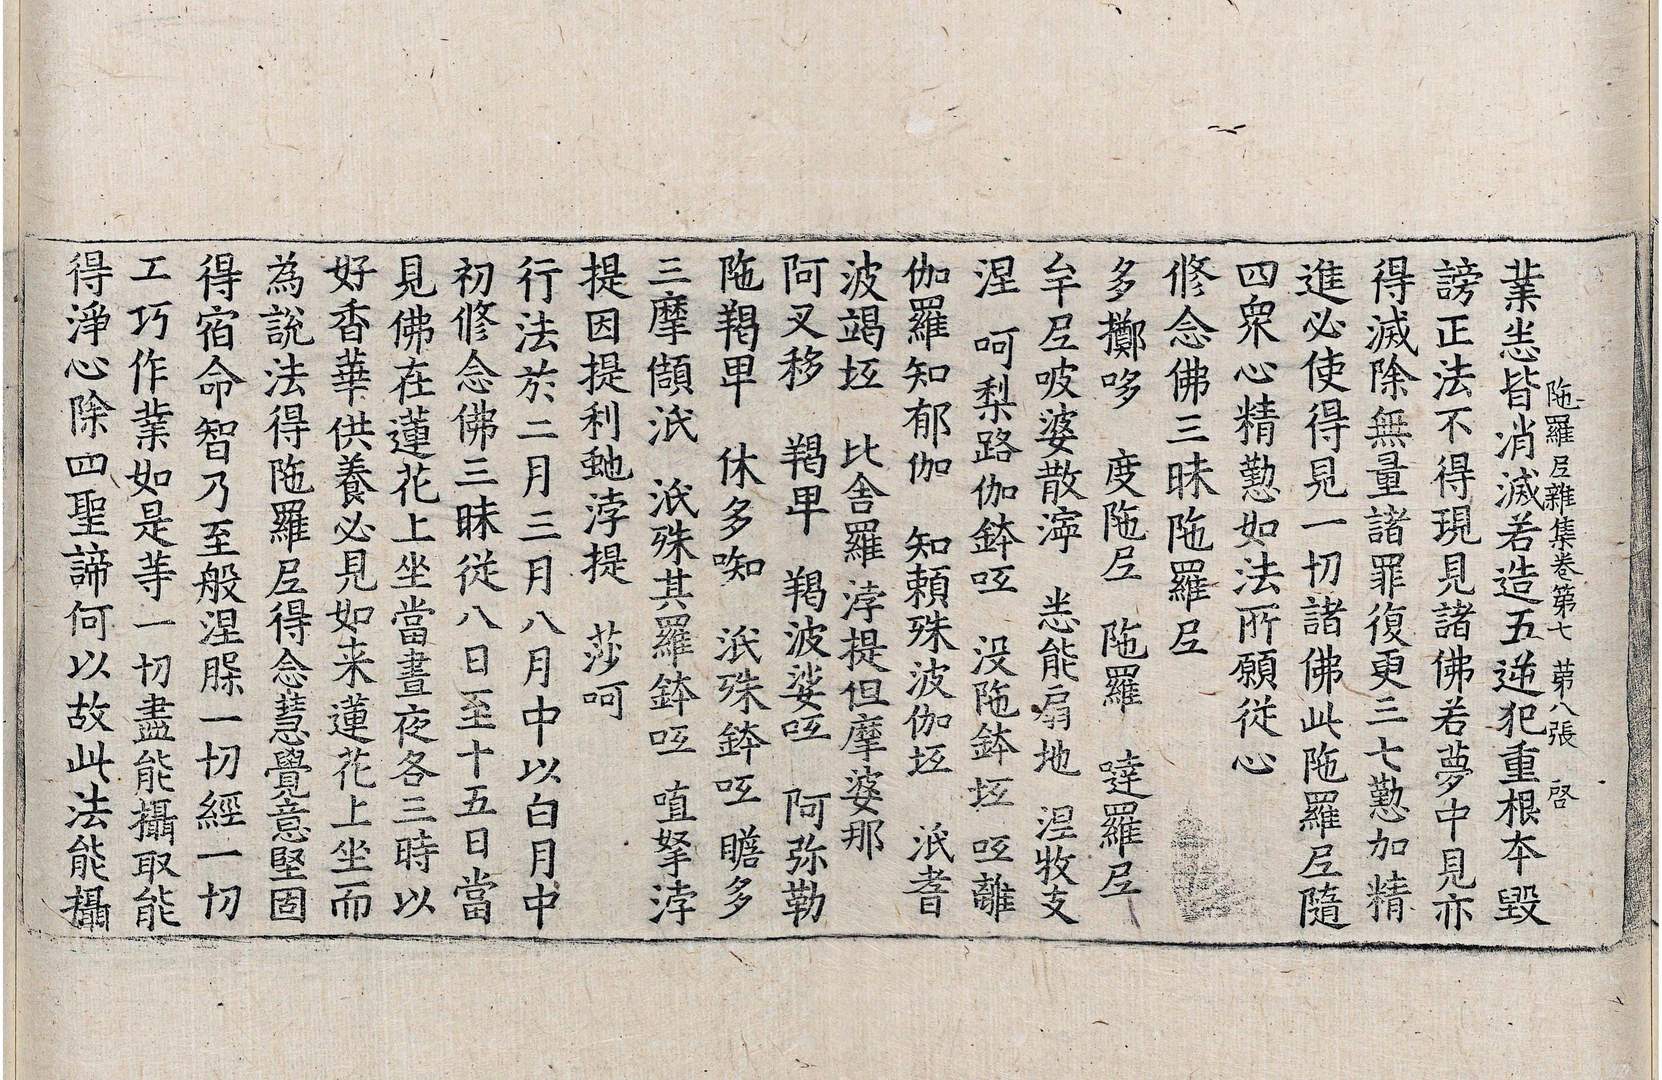 陁羅尼雜集卷第七　苐八張　启
業悉皆消滅若造五逆犯重根本毀
謗正法不得現見諸佛若夢中見亦
得滅除無量諸罪復更三七懃加精
進必使得見一切諸佛此陁羅尼隨
四衆心精懃如法所願從心
修念佛三昧陁羅尼
多擲哆　度陁尼　陁羅　噠羅尼
牟尼啵婆散濘　悉能扇地　涅牧支
涅　呵梨路伽鉢吺　没陁鉢坘　吺離
伽羅知郁伽　知頼殊波伽坘　泜耆
波竭坘　比舍羅浡提但摩婆那
阿叉移　羯甲　羯波娑吺　阿弥勒
陁羯甲　休多㗌　泜殊鉢吺瞻多
三摩頢泜　泜殊其羅鉢吺　嗔拏浡
提因提利虵浡提　莎呵
行法於二月三月八月中以白月中
初修念佛三昧從八日至十五日當
見佛在蓮花上坐當晝夜各三時以
好香華供養必見如来蓮花上坐而
為說法得陁羅尼得念慧覺意堅固
得宿命智乃至般涅槃一切經一切
工巧作業如是等一切盡能攝取能
得淨心除四聖諦何以故此法能攝